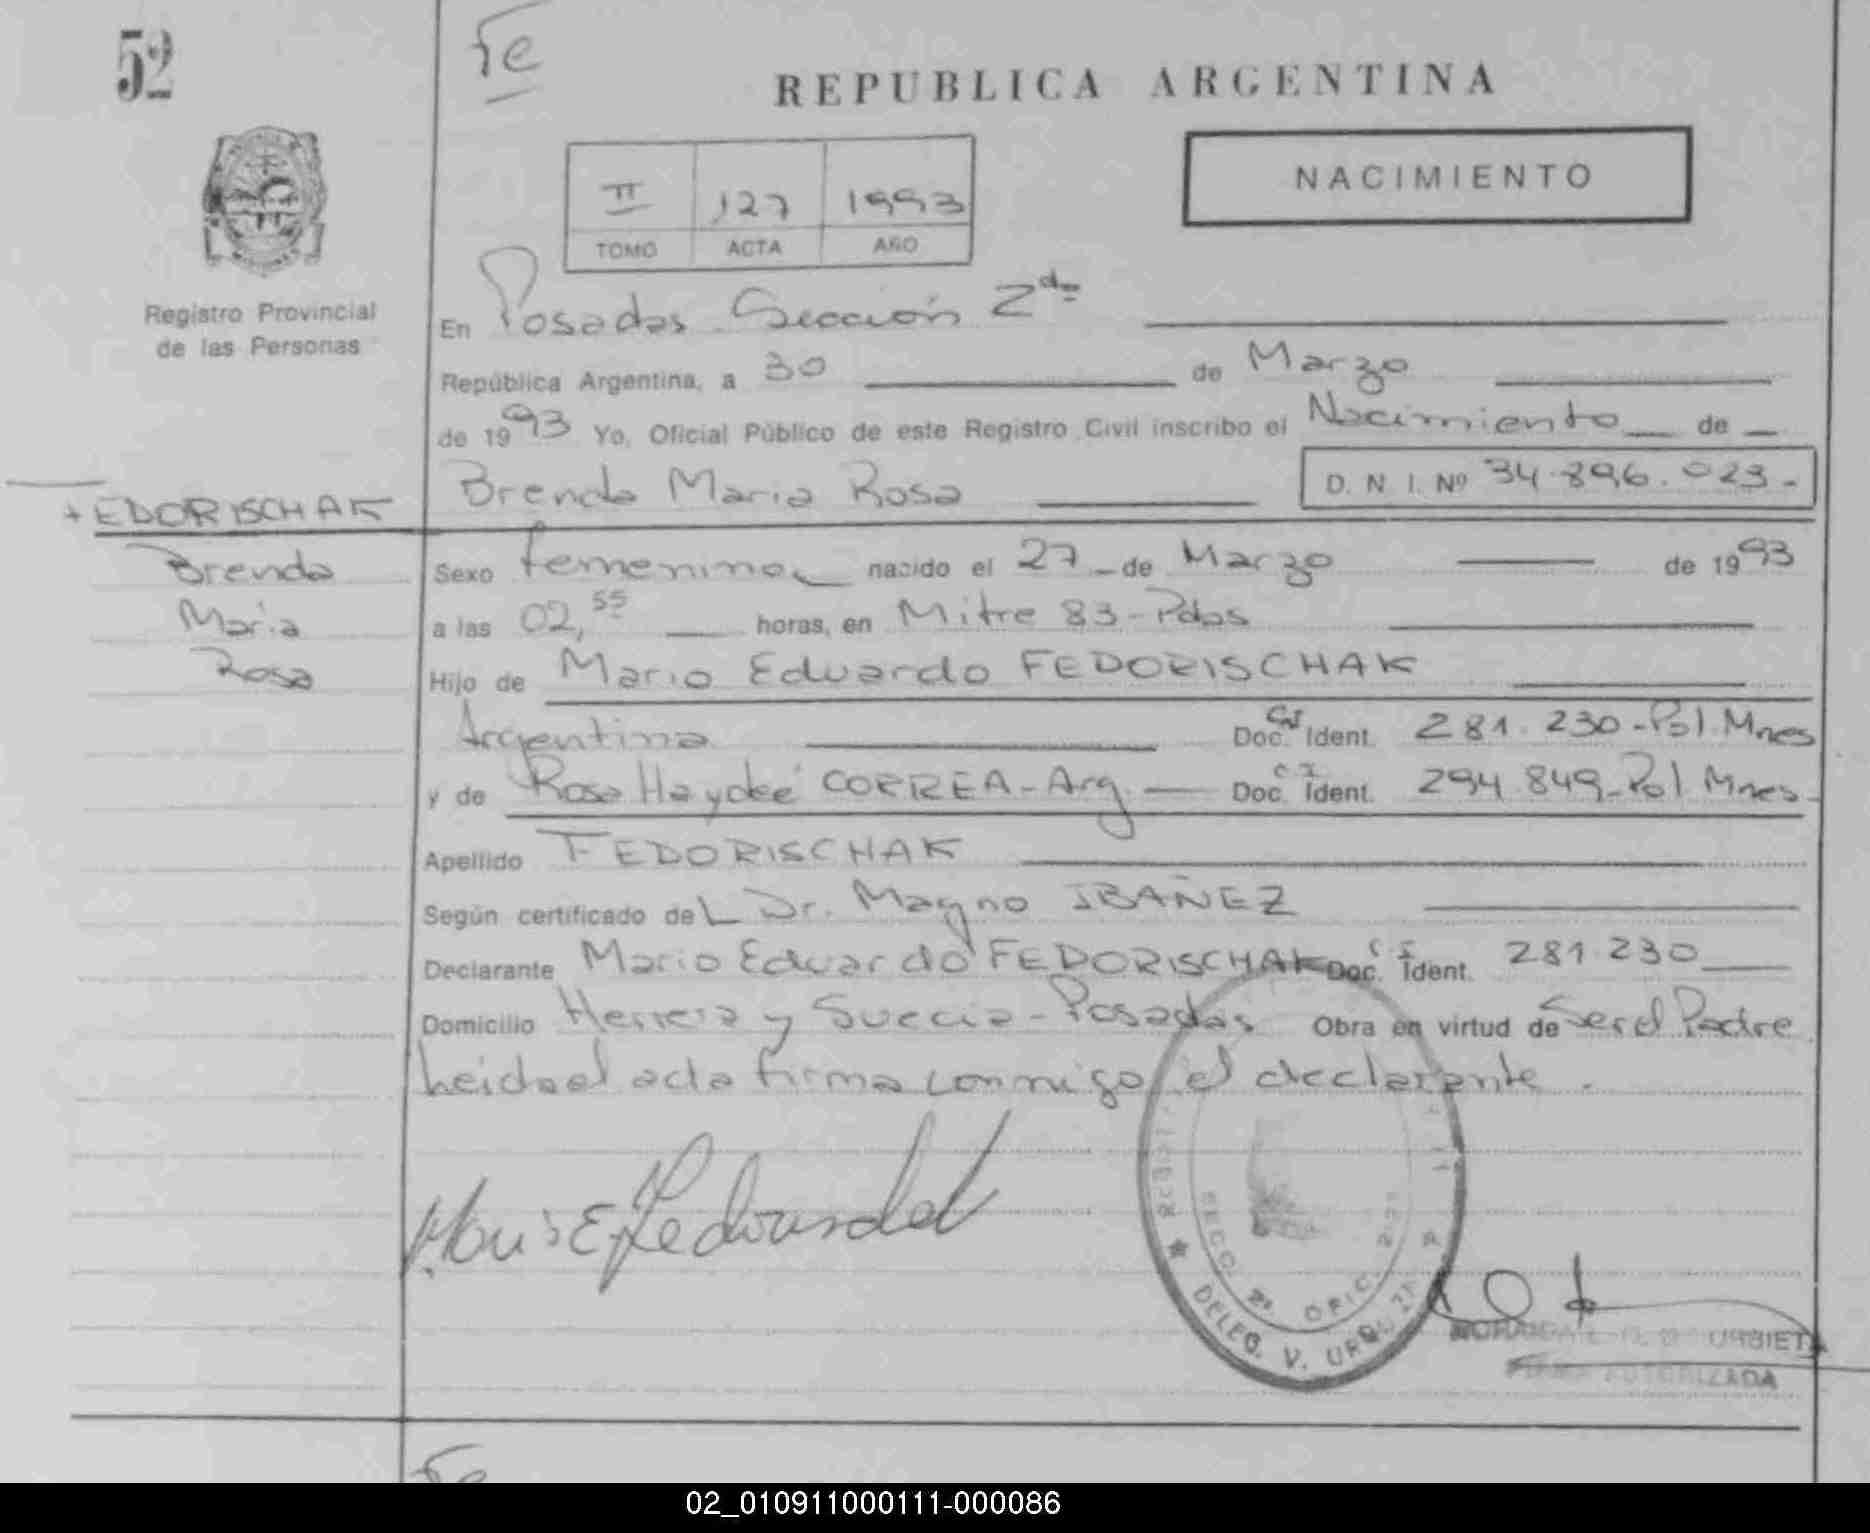 52
Fe
REPUBLICA ARGENTINA
II 127 1993
TOMO ACTA AÑO
NACIMIENTO
Registro Provincial
de las Personas
En Posadas Sección 2da
República Argentina, a 30 de Marzo
de 1993 Yo, Oficial Público de este Registro Civil inscribo el Nacimiento de
Brenda Maria Rosa D. N. I. Nº 34.896.023-
FEDORISCHAK
Brenda
Maria
Rosa
Sexo femenino nacido el 27 de Marzo de 1993
a las 02,55 horas, en Mitre 83-Pdas
Hijo de Mario Eduardo FEDORISCHAK
Argentina Doc. CI Ident. 281.230-Pol.Mnes
y de Rosa Haydée CORREA-Arg. Doc. CI Ident. 294.849-Pol Mnes-
Apellido FEDORISCHAK
Según certificado del Dr. Magno IBAÑEZ
Declarante Mario Eduardo FEDORISCHAK Doc. CI Ident. 281.230
Domicilio Herrera y Suecia-Posadas Obra en virtud de Ser el Padre
Leida el acta firma conmigo el declarante.
SECC. 2ª OFIC.
DELEG. V. URQ
URBIETA
AUTORIZADA
Fe
02_010911000111-000086